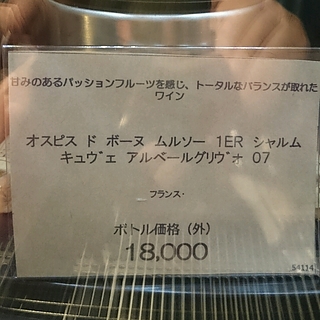 甘みのあるパッションフルーツを感じ、トータルなバランスが取れた
ワイン
オスピス ド ボーヌ ムルソー 1ER シャルム
キュヴェ アルベールグリヴォ 07
フランス・
ボトル価格（外）
18,000
S4114